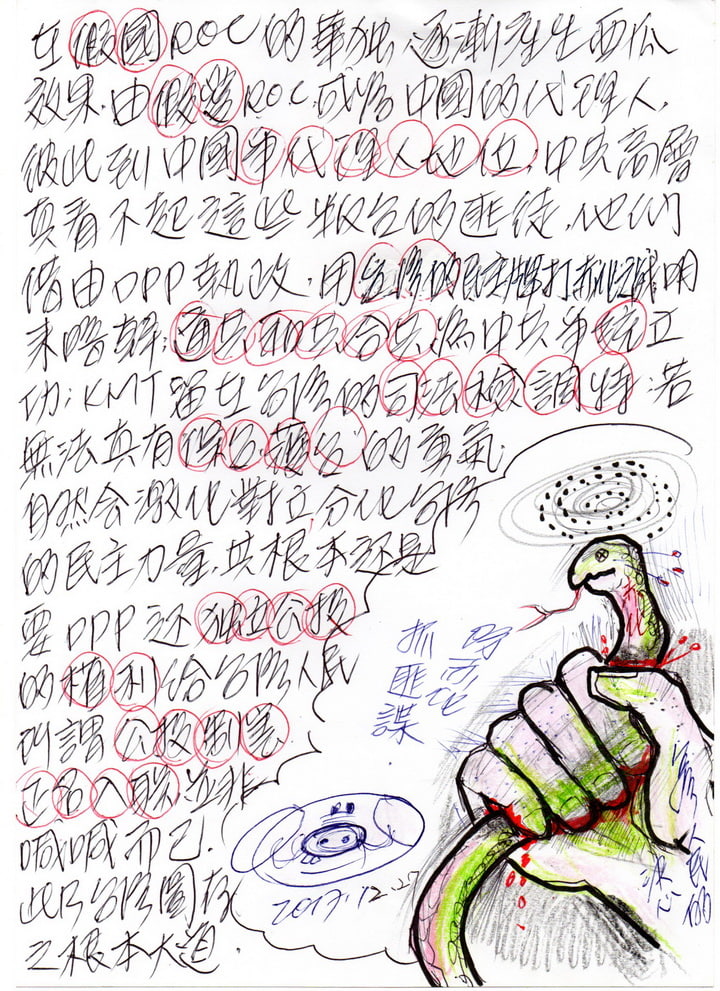 在假國ROC的華独逐漸產生西瓜
效果.由假造ROC.成為中國的代理人,
彼此到中國爭代理人地位;中共高層
真看不起這些叛台的匪徒.他們
借由DPP執政.用台灣的民主牌打
明
來暗幹;通共和共合共為中共爭統立
功;KMT留在台灣的司法檢調特;若
無法真有保台護台的勇氣.
自然会激化對立分化台灣
的民主力量,其根本还是
要DPP还独立公投
的權利給台灣人民
所謂公投制憲
正名入聯.並非
喊喊而已.!
此乃台灣圖存
之根本大道.
抓匪諜
台灣人民的
決心
2017.12.27